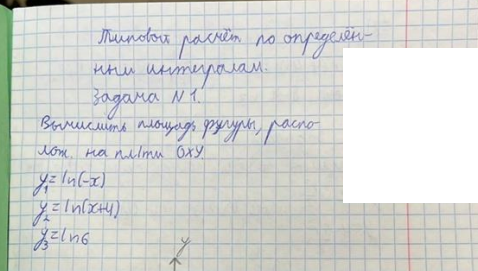 Типовой расчёт по определён-
ным интегралам.
Задача N 1.
Вычислить площадь фигуры, распо-
лож. на пл/ти OXY.
y₁=ln(-x)
y₂=ln(x+4)
y₃=ln6
y